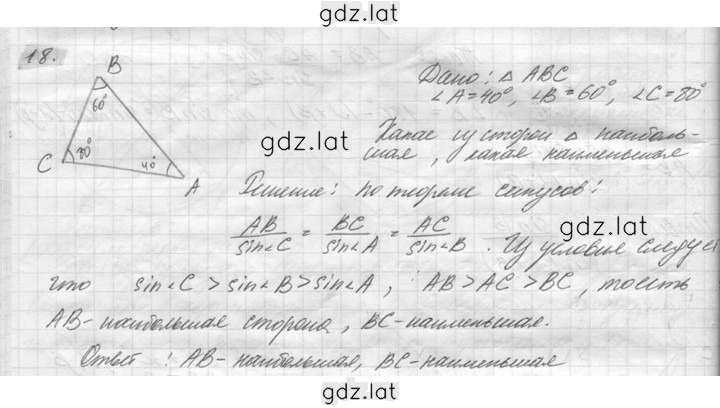 gdz.lat
18.
B
60°
C
80°
40°
A
gdz.lat
Дано: △ ABC
∠A=40°, ∠B=60°, ∠C=80°
gdz.lat
Какая из сторон △ наиболь-
шая, какая наименьшая
Решение: По теореме синусов:
AB/sin∠C = BC/sin∠A = AC/sin∠B. Из условия следует
gdz.lat
что sin∠C > sin∠B > sin∠A, AB > AC > BC, тоесть
AB - наибольшая сторона, BC - наименьшая.
Ответ: AB - наибольшая, BC - наименьшая
gdz.lat